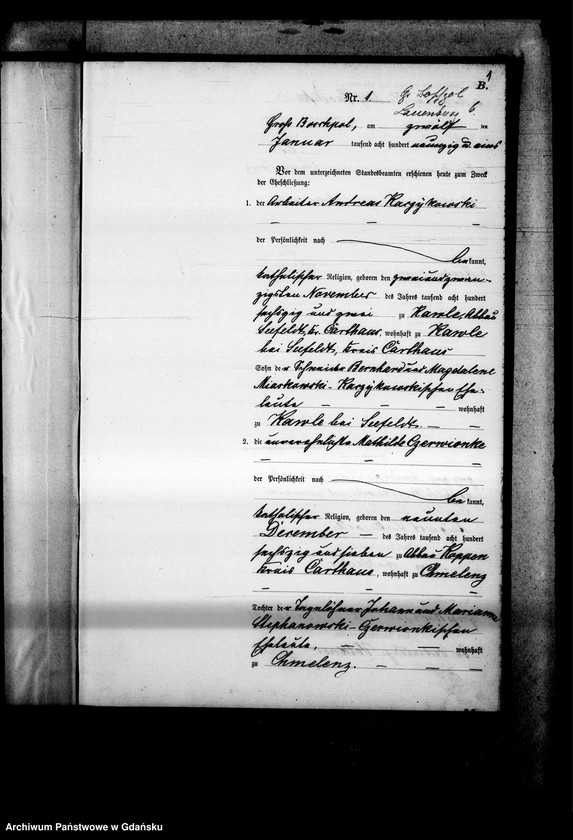 1
B.
Nr. 1.
Lauenburg
Groß Boschpol, am zwölften
Januar tausend acht hundert neunzig u. eins
Vor dem unterzeichneten Standesbeamten erschienen heute zum Zweck
der Eheschließung:
1. der Arbeiter Andreas Karzykowski
— — —
der Persönlichkeit nach
bekannt,
katholischer Religion, geboren den zweiundzwan-
zigsten November des Jahres tausend acht hundert
sechszig und zwei zu Kawle Abbau
Seefeldt, Kr. Carthaus, wohnhaft zu Kawle
bei Seefeldt, Kreis Carthaus
Sohn der Schneider Bernhard und Magdalene
Miaskowski-Karzykowskischen Ehe-
leute — — — wohnhaft
zu Kawle bei Seefeldt. — —
2. die unverehelichte Mathilde Czerwionke
— — —
der Persönlichkeit nach
bekannt,
katholischer Religion, geboren den neunten
Dezember — des Jahres tausend acht hundert
sechszig und sieben zu Abbau Koppen
Kreis Carthaus, wohnhaft zu Chmelenz
— — —
Tochter der Tagelöhner Johann und Marianne
Stephanowski-Czerwionkischen
Eheleute, — — wohnhaft
zu Chmelenz. — — —
Archiwum Państwowe w Gdańsku